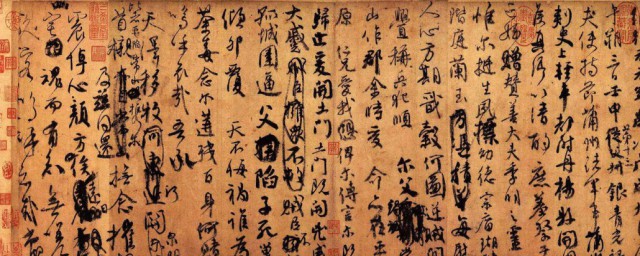 午朔三日壬申第十三叔銀青光祿
夫使持節蒲州諸軍事蒲州
刺史上輕車都尉丹楊縣開
侯真卿以清酌庶羞祭于
亡姪贈贊善大夫季明之靈
惟爾挺生夙標幼德宗廟瑚
階庭蘭玉每慰
人心方期戩穀何圖逆賊閒
釁稱兵犯順爾父竭
山作郡余時受命亦在平
原仁兄愛我俾爾傳言爾
歸止爰開土門土門既開凶威
大蹙賊臣不
孤城圍逼父陷子死巢
傾卵覆天不悔禍誰為
荼毒念爾遘殘百身何贖
嗚乎哀哉吾承
天澤移牧河關泉明
首櫬及茲同還撫念摧
震悼心顏方俟遠日
宅魂而有知無嗟
久客嗚呼哀哉尚